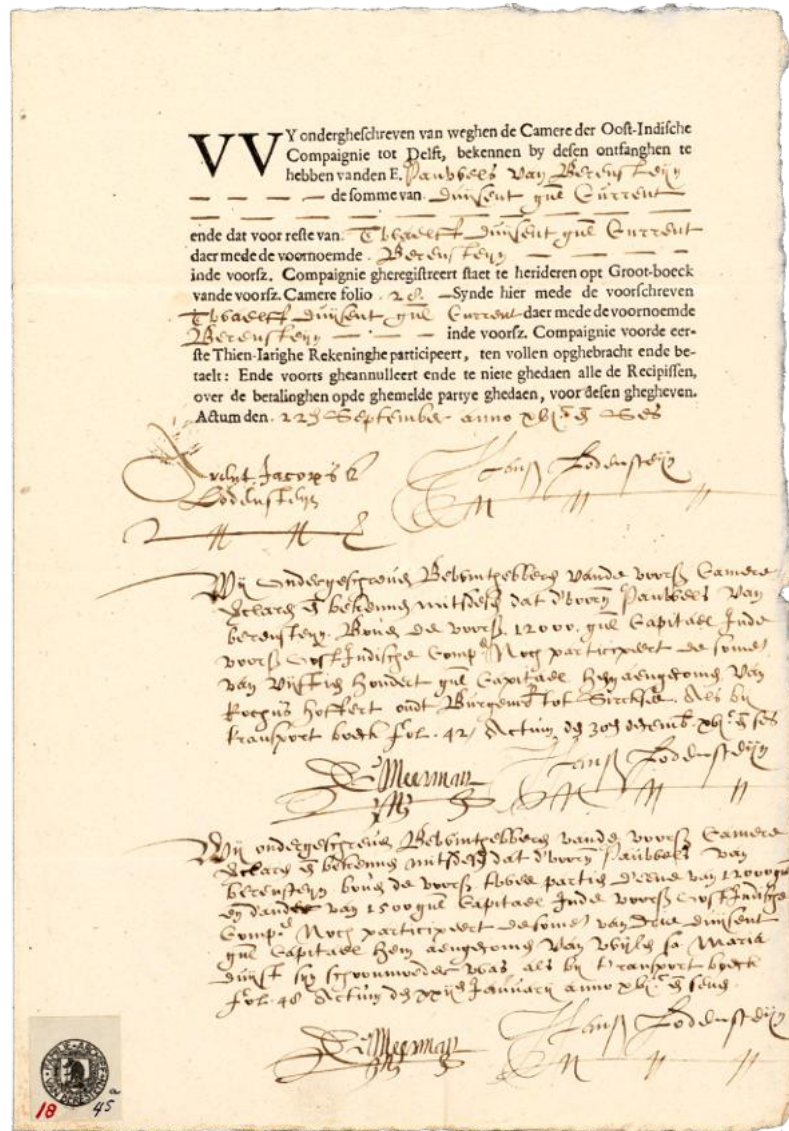 VVY ondergheschreven van weghen de Camere der Oost-Indische
Compaignie tot Delft, bekennen by desen ontfanghen te
hebben vanden E. Pauwels van Berensteijn
de somme van duijsent gul Current
ende dat voor reste van Twaelff duijsent gul Current
daer mede de voornoemde Berensteijn
inde voorsz. Compaignie gheregistreert staet te herideren opt Groot-boeck
vande voorsz. Camere folio 28. Synde hier mede de voorschreven
Twaelff duijsent gul Current daer mede de voornoemde
Berensteijn inde voorsz. Compaignie voorde eer-
ste Thien-Iarighe Rekeninghe participeert, ten vollen opghebracht ende be-
taelt: Ende voorts gheannulleert ende te niete ghedaen alle de Recipissen,
over de betalinghen opde ghemelde partye ghedaen, voor desen ghegheven.
Actum den 22 September anno ses
Jacopsz
Lodensteijn
Hans Lodensteijn
Wij ondergeschreven Bewinthebbers vande voorsz Camere
bekennen mitsdesen dat d'voorn Pauwels van
berensteijn boven de voorsz. 12000. gul Capitael Inde
voorsz Oost Indische Comp Noch participeert de somme
van Vijfftien hondert gul Capitael hem aengecomen van
hoffert oudt Burgemr tot als bij
transport boeck fol. 42 Actum den decemb. ses
Meerman
Hans Lodensteijn
Wij ondergeschreven Bewinthebbers vande voorsz Camere
bekennen mitsdesen dat d'voorn Pauwels van
berensteijn boven de voorsz twee partien d'eene van 12000 gul
van 1500 gul Capitael Inde voorsz Oost Indische
Comp Noch participeert de somme van drie duijsent
gul Capitael hem aengecomen van Maria
duijst sijn schoonmoeder was als bij transport boeck
fol. 48 Actum den Januarij anno
Meerman
Hans Lodensteijn
18 45a